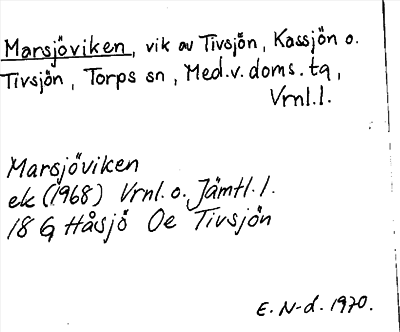 Marsjöviken, vik av Tivsjön, Kassjön o.
Tivsjön, Torps sn, Med.v.doms.tg,
Vrnl.l.
Marsjöviken
ek (1968) Vrnl. o. Jämtl. l.
18 G Håsjö Oe Tivsjön
E. N-d. 1970.